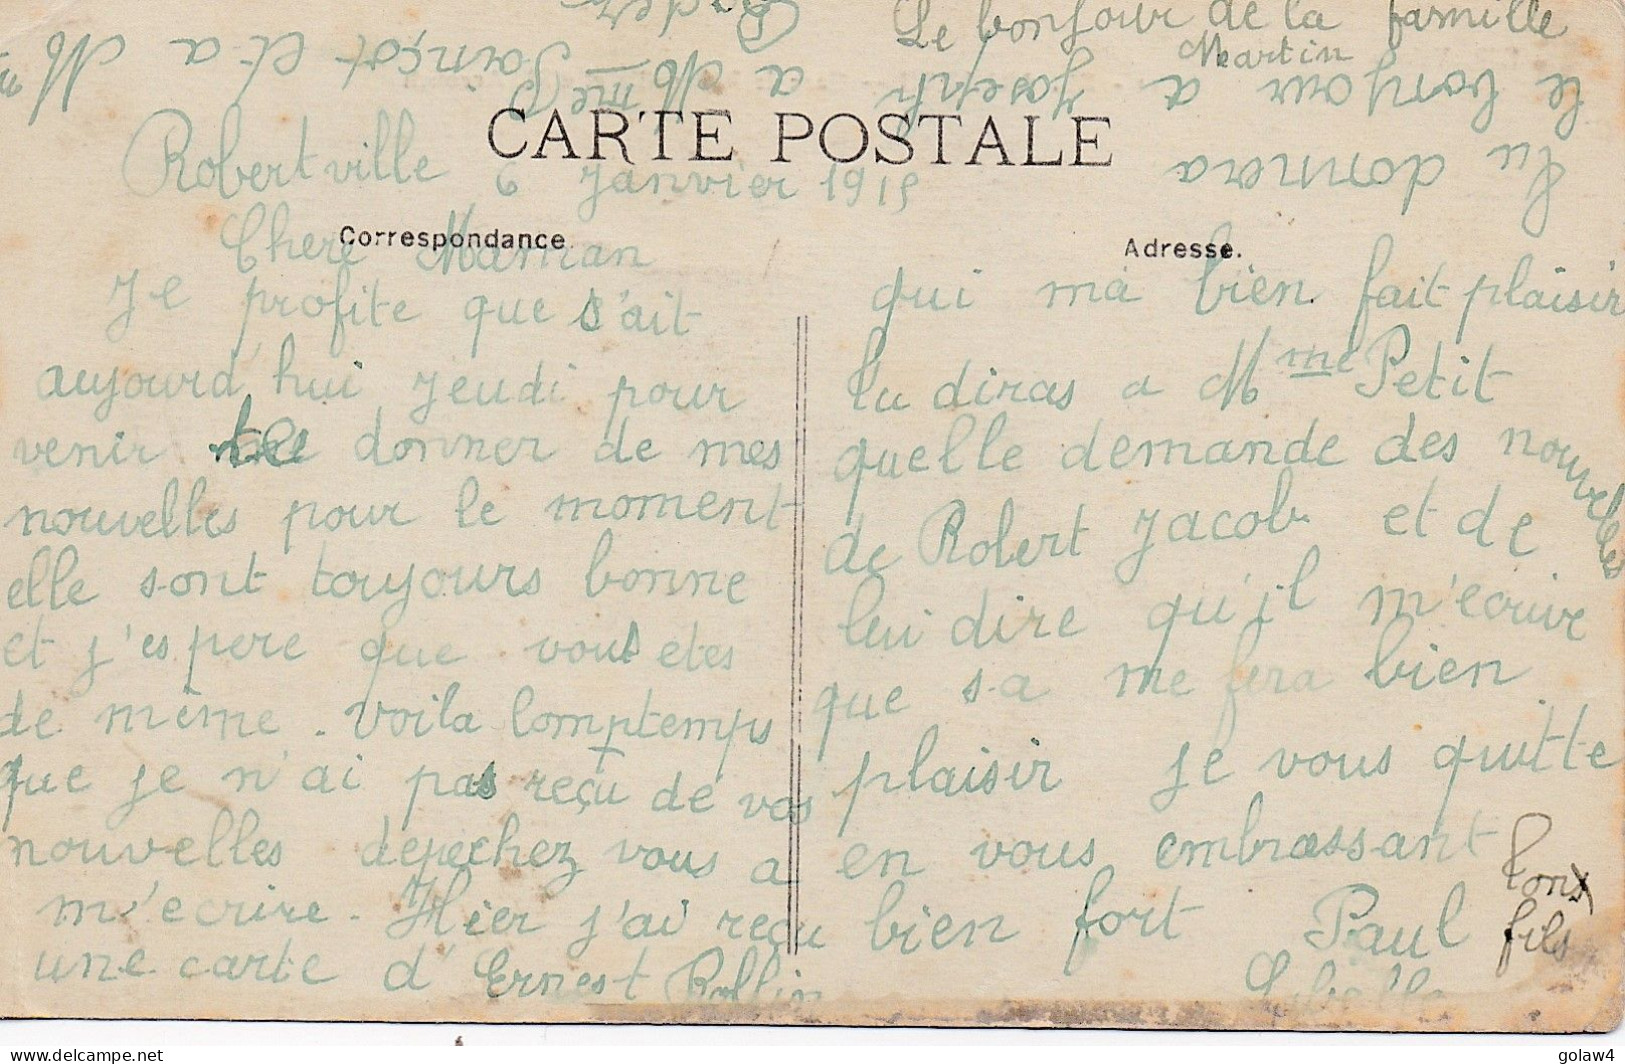 Le bonjour de la famille
Martin
CARTE POSTALE
Robertville 6 Janvier 1915
Correspondance
Adresse.
Chere Maman
Je profite que s'ait
aujourd'hui jeudi pour
venir donner de mes
nouvelles pour le moment
elle sont toujours bonne
et j'espere que vous etes
de même. Voila lomptemps
que je n'ai pas reçu de vos
nouvelles depechez vous a
m'ecrire. Hier j'ai reçu
une carte d'Ernest Rollin
qui ma bien fait plaisir
tu diras a Mme Petit
quelle demande des nouvelles
de Robert Jacob et de
lui dire qu'il m'ecrive
que sa me fera bien
plaisir je vous quitte
en vous embrassant
bien fort Paul
ton fils
tu donnera
le bonjour a Joseph a Mme
et a M
golaw4
delcampe.net